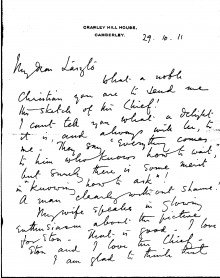 CRAWLEY HILL HOUSE,
CAMBERLEY.
29. 10. 11
My dear László
What a noble
Christian you are to send me
the sketch of his Chief!
I can't tell you what a delight
it is, and always will be, to
me. They say "Everything comes
to him who knows how to wait"
but surely there is some merit
in knowing how to ask"!
A man clearly without shame!
My wife speaks in glowing
enthusiasm about the picture
for Ston. That is good. I love
Ston and I love the Chief &
I am glad to think that